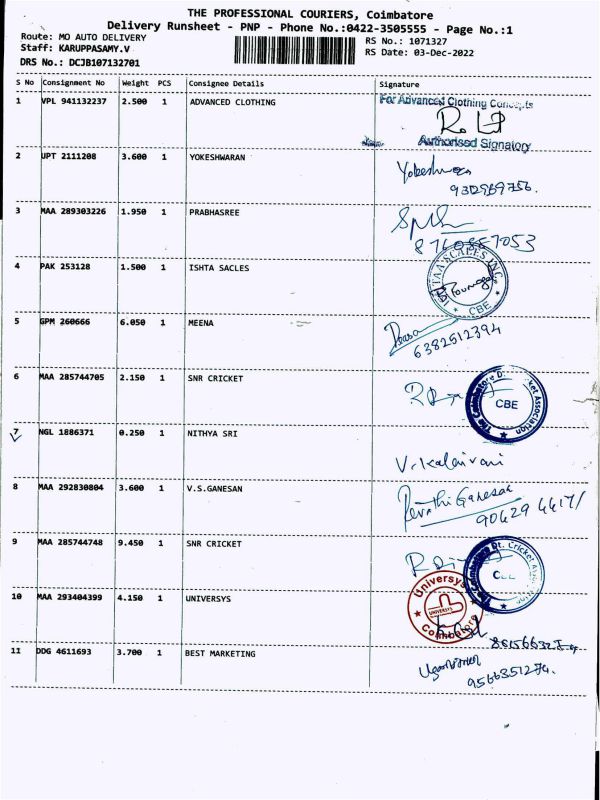 THE PROFESSIONAL COURIERS, Coimbatore
Delivery Runsheet - PNP - Phone No.:0422-3505555 - Page No.:1
Route: MO AUTO DELIVERY
Staff: KARUPPASAMY.V
DRS No.: DCJB107132701
RS No.: 1071327
RS Date: 03-Dec-2022
S No Consignment No Weight PCS Consignee Details Signature
1 VPL 941132237 2.500 1 ADVANCED CLOTHING
For Advanced Clothing Concepts
Authorised Signatory
2 UPT 2111208 3.600 1 YOKESHWARAN
3 MAA 289303226 1.950 1 PRABHASREE
4 PAK 253128 1.500 1 ISHTA SACLES
CBE
5 GPM 260666 6.050 1 MEENA
6382512394
6 MAA 285744705 2.150 1 SNR CRICKET
The Coimbatore Dt. Cricket Association
CBE
7 NGL 1886371 0.250 1 NITHYA SRI
V. Kalaivani
8 MAA 292830804 3.600 1 V.S.GANESAN
Revathi Ganesan
9 MAA 285744748 9.450 1 SNR CRICKET
10 MAA 293404399 4.150 1 UNIVERSYS
Universys
UNIVERSYS
Coimbatore
11 DDG 4611693 3.700 1 BEST MARKETING
9566351274.